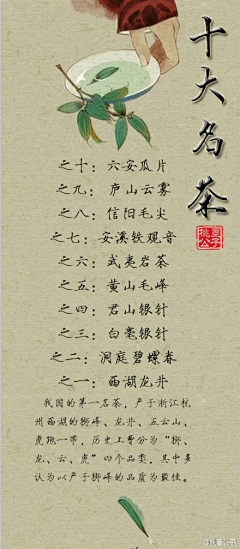 十大名茶
之十：六安瓜片
之九：庐山云雾
之八：信阳毛尖
之七：安溪铁观音
之六：武夷岩茶
之五：黄山毛峰
之四：君山银针
之三：白毫银针
之二：洞庭碧螺春
之一：西湖龙井
我国的第一名茶，产于浙江杭
州西湖的狮峰、龙井、五云山、
虎跑一带，历史上曾分为“狮、
龙、云、虎”四个品类，其中多
认为以产于狮峰的品质为最佳。